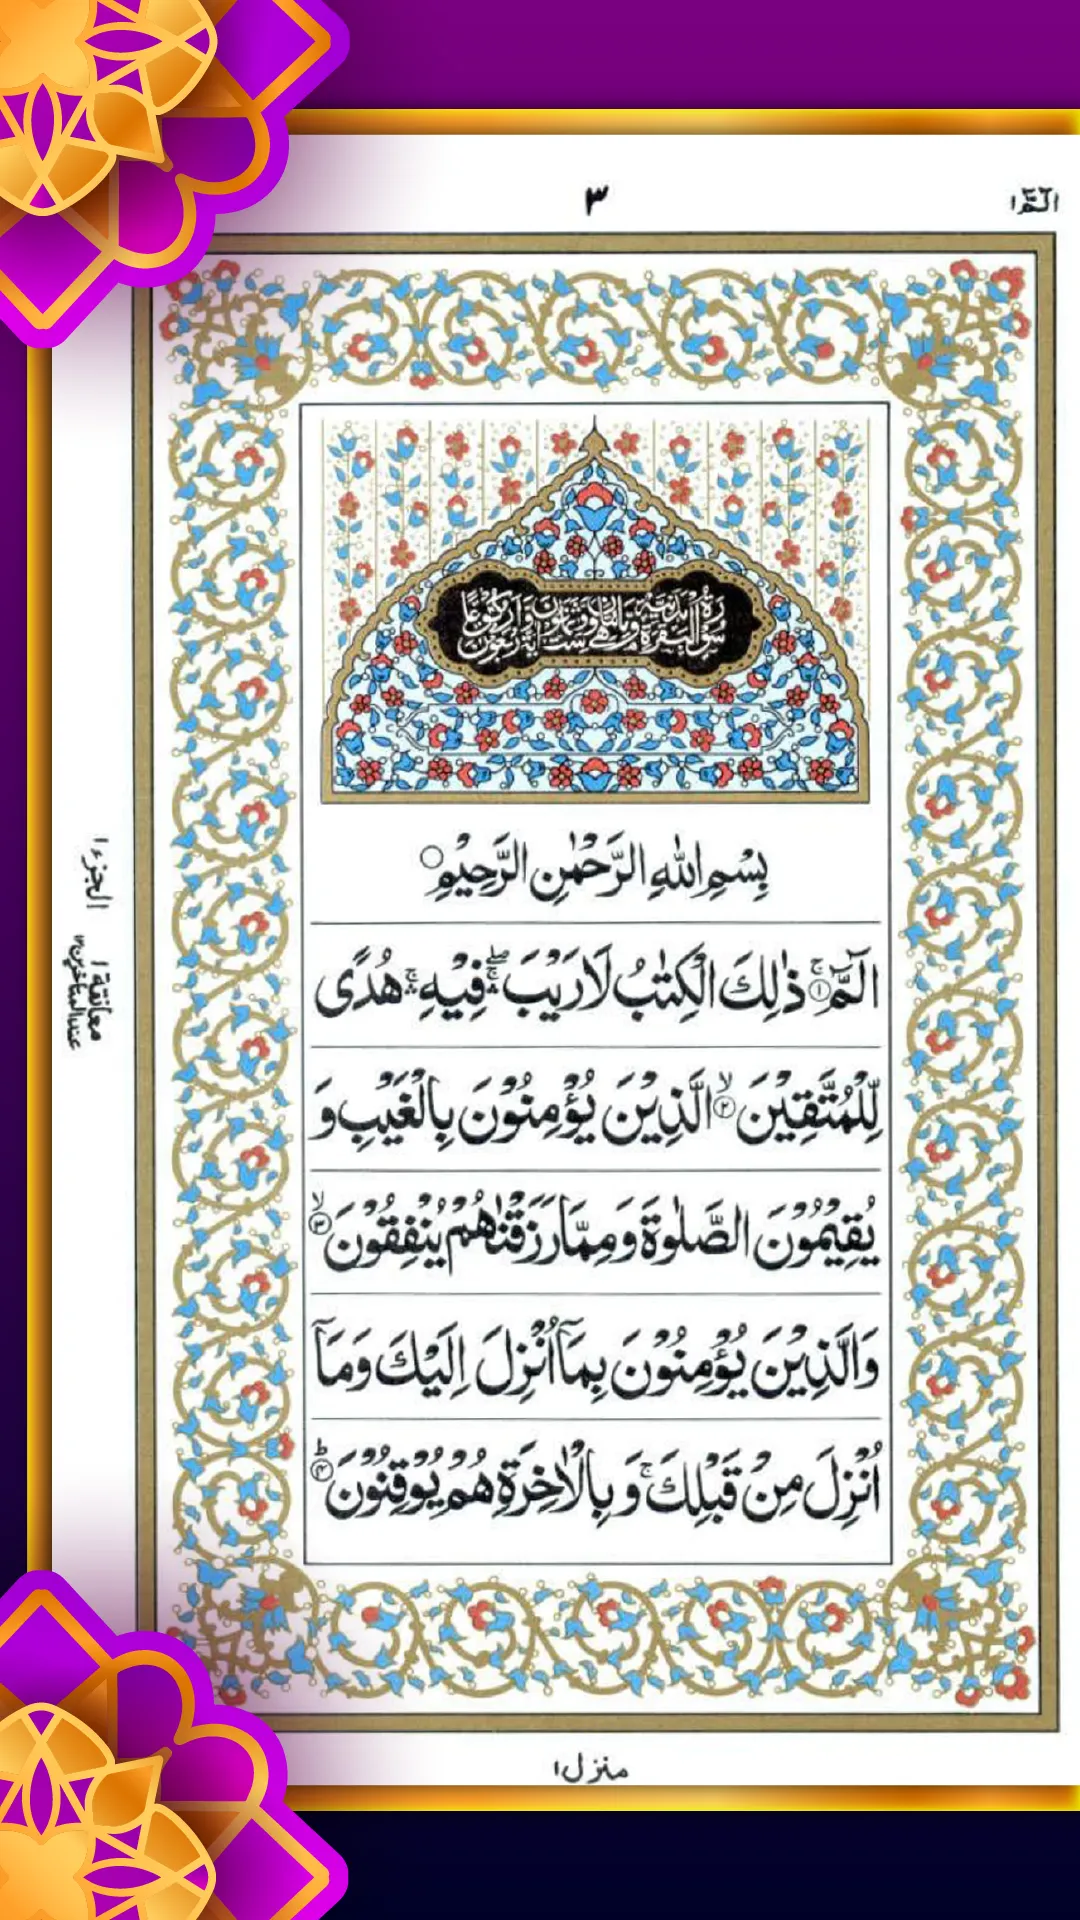 الٓمّٓ ١
٣
سُوْرَةُ الْبَقَرَةِ مَدَنِيَّةٌ وَّهِيَ مِائَتَانِ وَسِتٌّ وَّثَمَانُوْنَ اٰيَةً وَّاَرْبَعُوْنَ رُكُوْعًا
بِسْمِ اللّٰهِ الرَّحْمٰنِ الرَّحِيْمِ○
الٓمّٓ ۚ﴿١﴾ ذٰلِكَ الْكِتٰبُ لَا رَيْبَ ۛۖ فِيْهِ ۛۚ هُدًى
لِّلْمُتَّقِيْنَ ۙ﴿٢﴾ الَّذِيْنَ يُؤْمِنُوْنَ بِالْغَيْبِ وَ
يُقِيْمُوْنَ الصَّلٰوةَ وَمِمَّا رَزَقْنٰهُمْ يُنْفِقُوْنَ ۙ﴿٣﴾
وَالَّذِيْنَ يُؤْمِنُوْنَ بِمَآ اُنْزِلَ اِلَيْكَ وَمَآ
اُنْزِلَ مِنْ قَبْلِكَ ۚ وَبِالْاٰخِرَةِ هُمْ يُوْقِنُوْنَ ؕ﴿٤﴾
الجزء ١
معانقة ١
عند المتاخرين ١٢
منزل ١